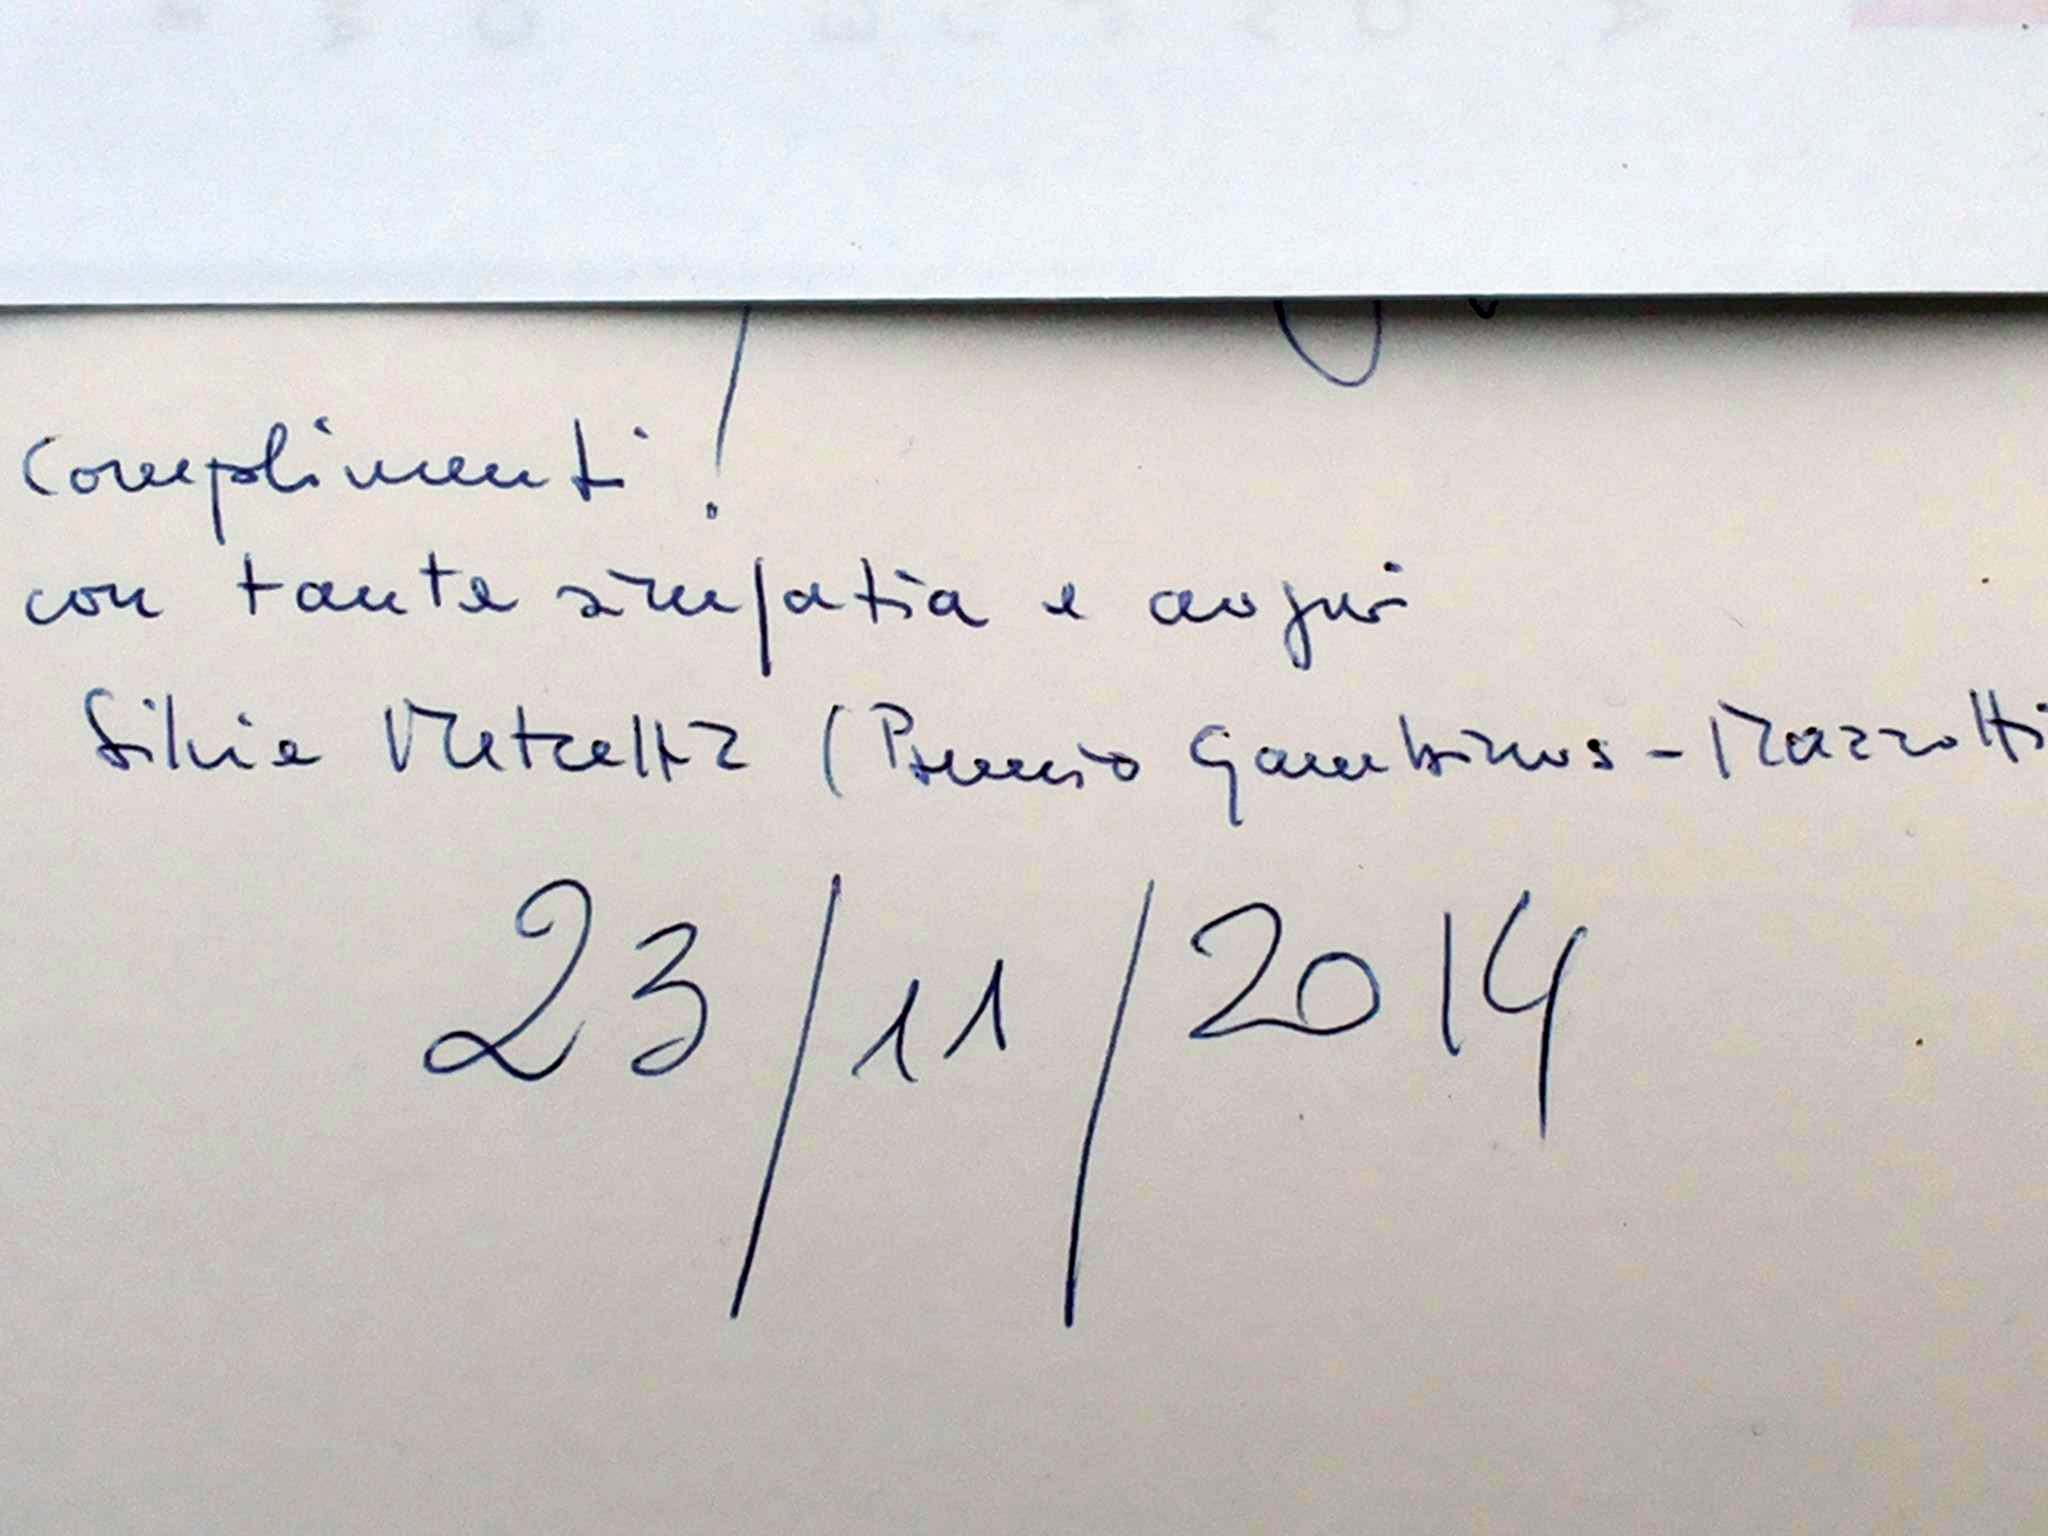 Complimenti!
con tante simpatia e auguri
Silvia Metzeltin (Premio Gambrinus - Mazzotti
23/11/2014